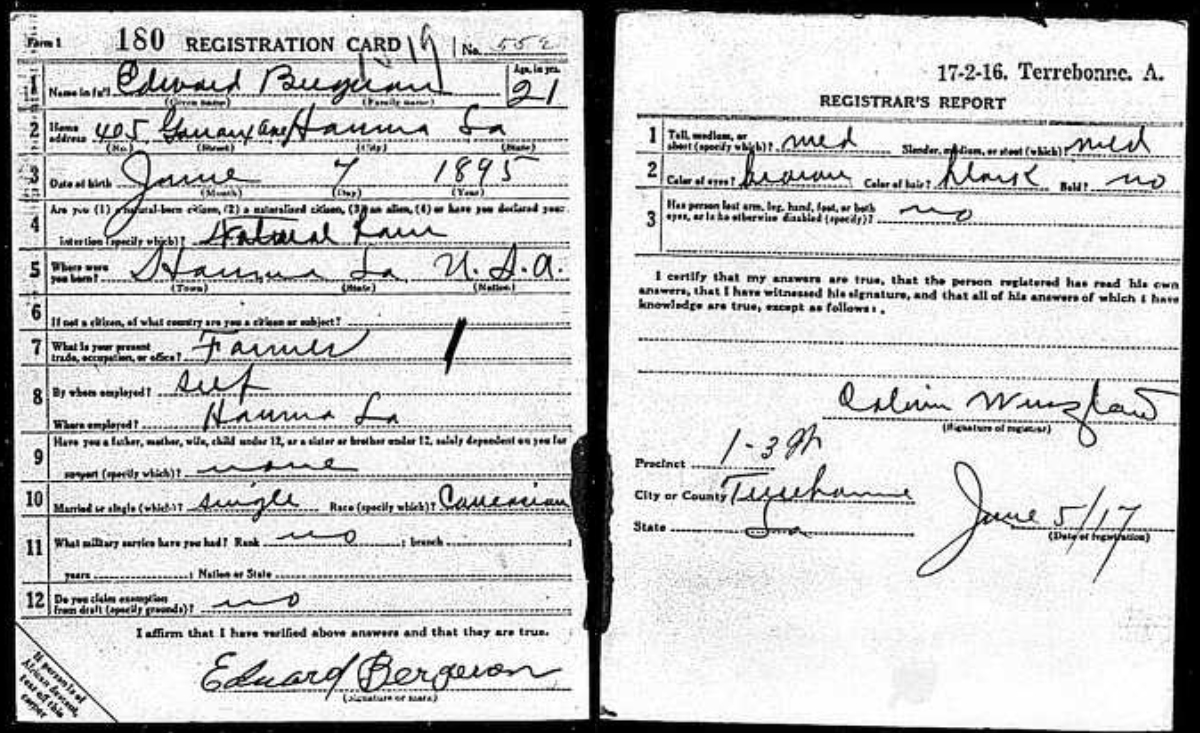 Form 1 180 REGISTRATION CARD 19 No. 552
1 Name in full Edward Bergeron Age, in yrs. 21
(Given name) (Family name)
2 Home address 405 Ave Hauma La
(No.) (Street) (City) (State)
3 Date of birth June 7 1895
(Month) (Day) (Year)
4 Are you (1) a natural-born citizen, (2) a naturalized citizen, (3) an alien, (4) or have you declared your
intention (specify which)? Natural born
5 Where were you born? Hauma La U.S.A.
(Town) (State) (Nation)
6 If not a citizen, of what country are you a citizen or subject?
7 What is your present trade, occupation, or office? Farmer
8 By whom employed? self
Where employed? Hauma La
9 Have you a father, mother, wife, child under 12, or a sister or brother under 12, solely dependent on you for
support (specify which)? none
10 Married or single (which)? single Race (specify which)? Caucasian
11 What military service have you had? Rank no ; branch ;
years ; Nation or State
12 Do you claim exemption from draft (specify grounds)? no
I affirm that I have verified above answers and that they are true.
Eduard Bergeron
(Signature or mark)
If person is of
African descent,
tear off this
corner
17-2-16. Terrebonne. A.
REGISTRAR'S REPORT
1 Tall, medium, or short (specify which)? med Slender, medium, or stout (which)? med
2 Color of eyes? brown Color of hair? black Bald? no
3 Has person lost arm, leg, hand, foot, or both
eyes, or is he otherwise disabled (specify)? no
I certify that my answers are true, that the person registered has read his own
answers, that I have witnessed his signature, and that all of his answers of which I have
knowledge are true, except as follows:
(Signature of registrar)
Precinct 1-3
City or County Terrebonne
State La
June 5/17
(Date of registration)